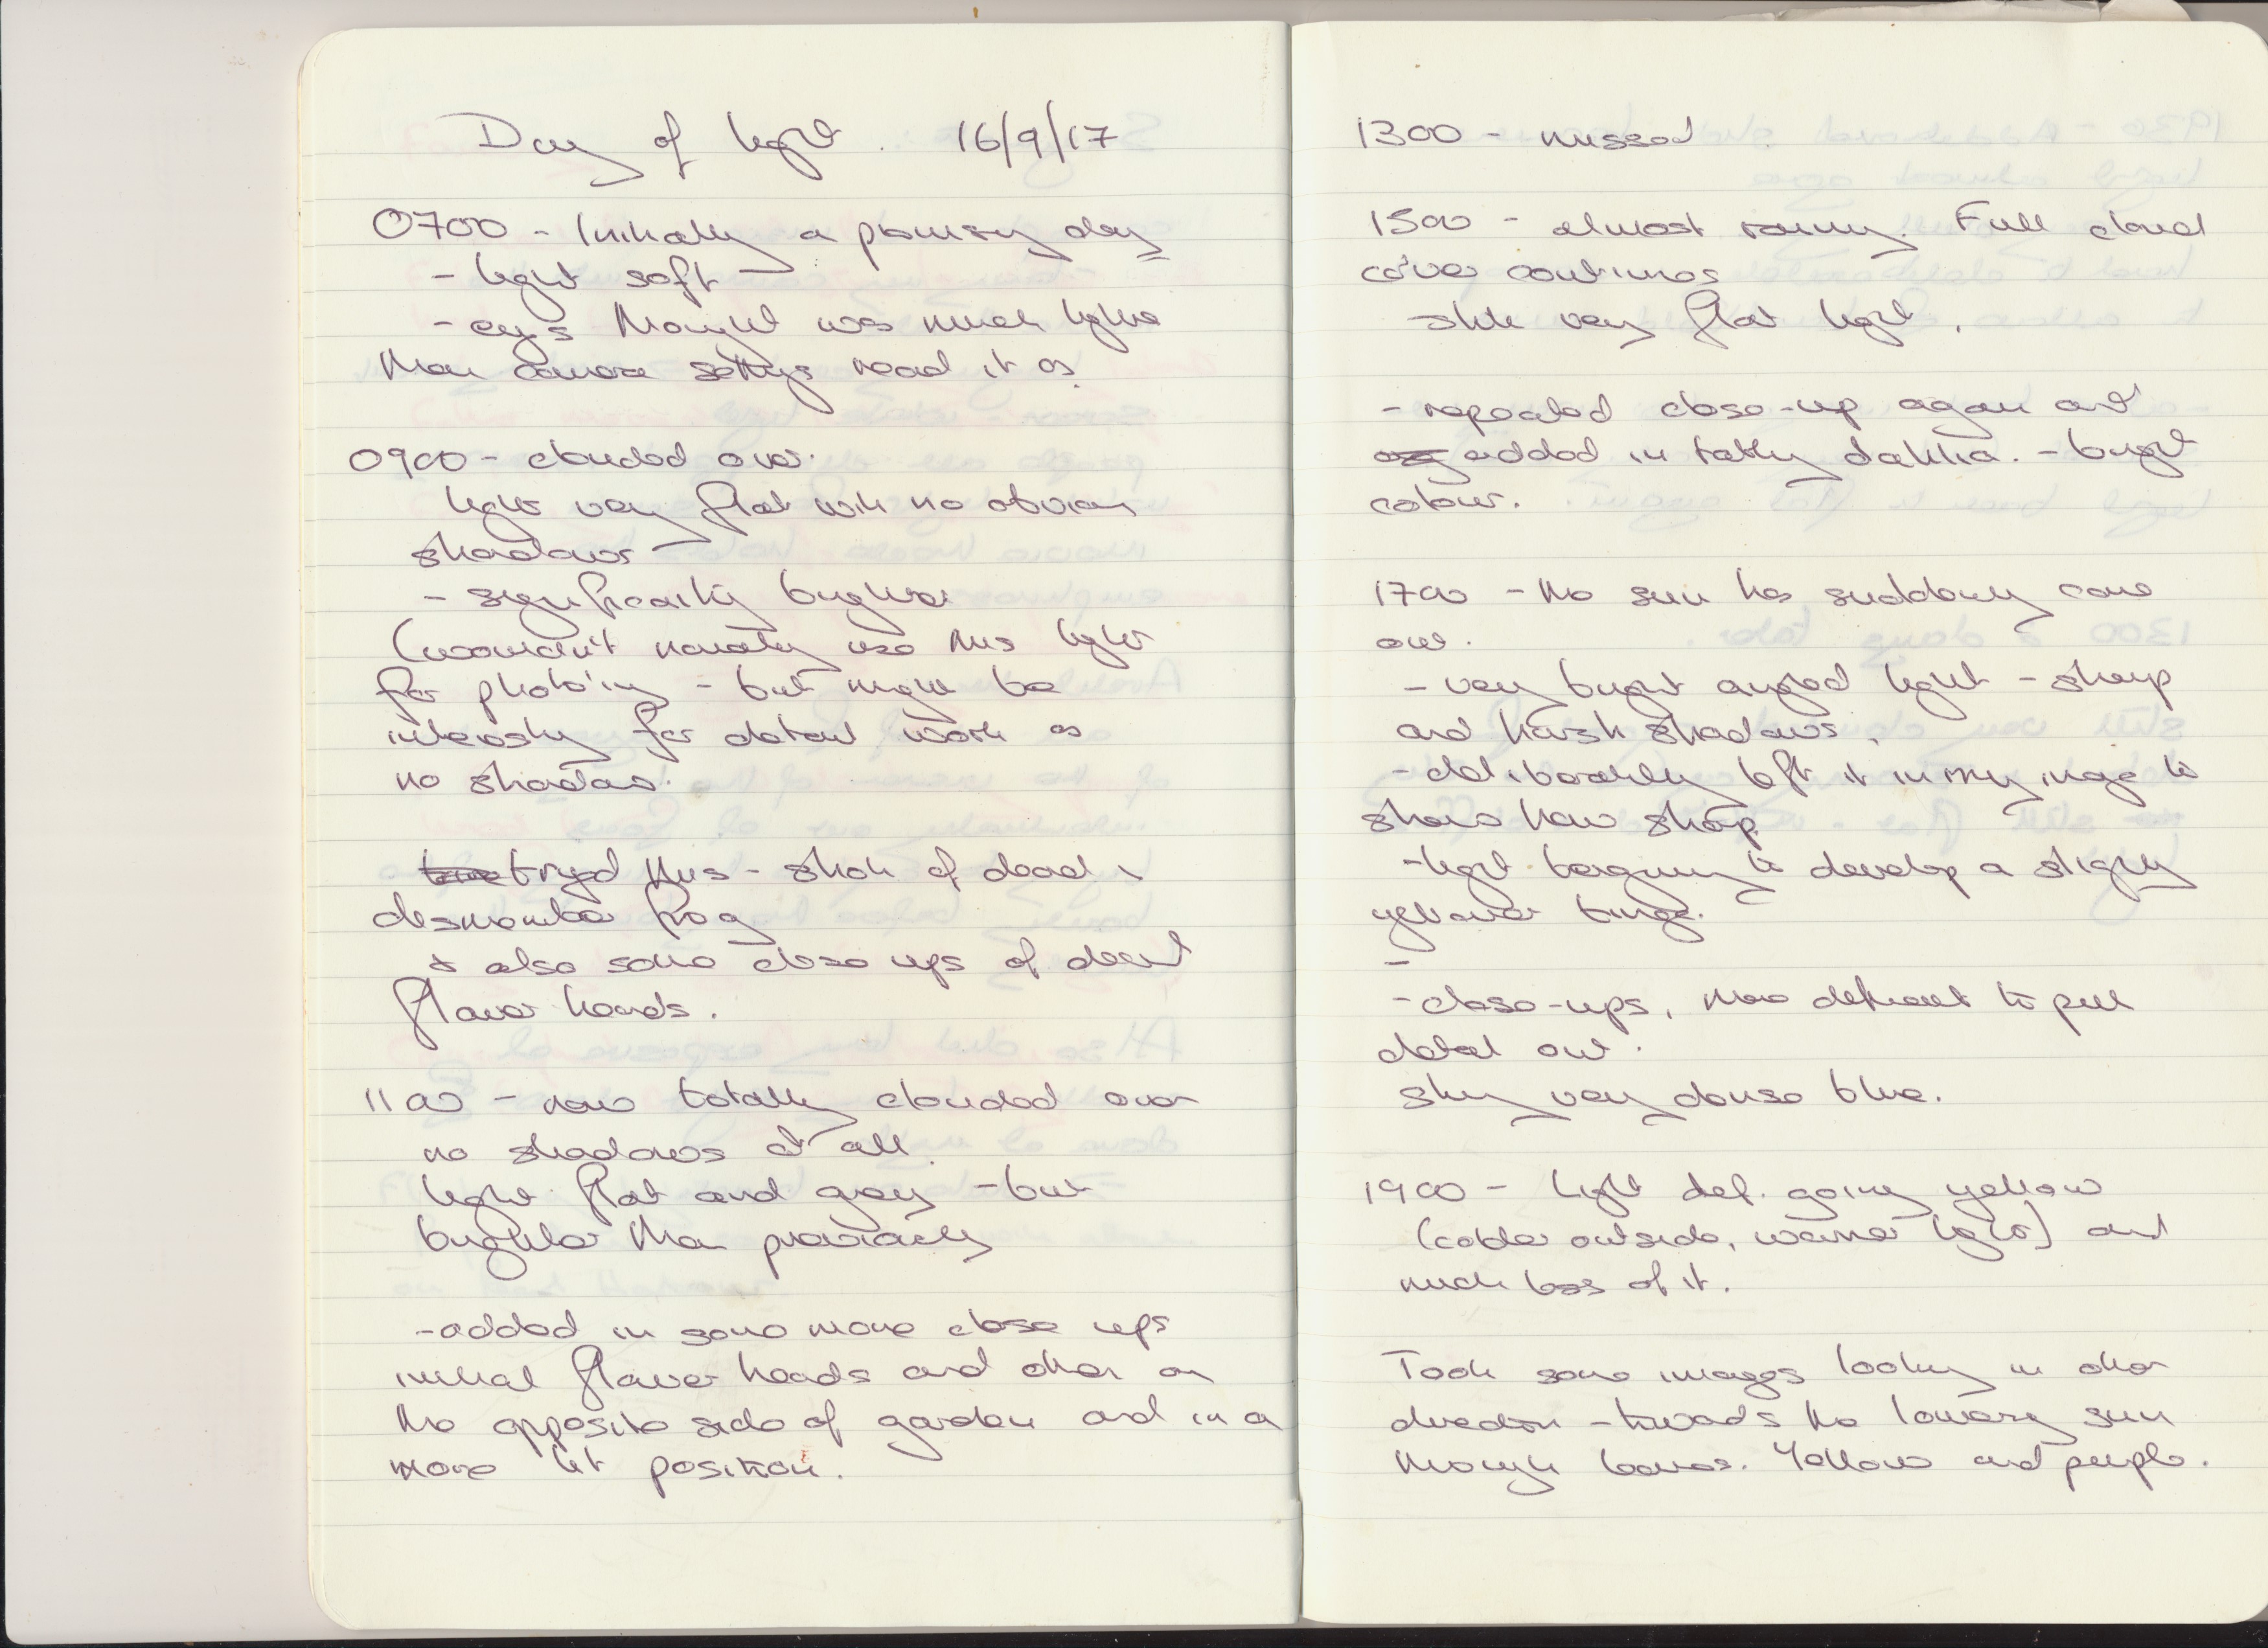 Day of light. 16/9/17
0700 - Initially a promising day
- light soft
- eyes thought was much lighter
than camera settings read it as.
0900 - clouded over.
light very flat with no obvious
shadows
- significantly brighter
(wouldn't normally use this light
for photo'ing - but might be
interesting for detail work as
no shadows.
tryed this - shot of dead &
dismember frog
& also some close ups of dead
flower heads.
1100 - now totally clouded over
no shadows at all.
light flat and grey - but
brighter than previously
- added in some more close ups
initial flower heads and other on
the opposite side of garden and in a
more lit position.
1300 - missed
1500 - almost rainy. Full cloud
cover continues
still very flat light.
- repeated close-up again and
added in tatty dahlia. - bright
colour.
1700 - the sun has suddenly come
out.
- very bright angled light - sharp
and harsh shadows.
- deliberately left it in my image to
show how sharp
- light beginning to develop a slightly
yellower tinge.
-
- close-ups, more difficult to pull
detail out.
sky very dense blue.
1900 - Light def. going yellow
(colder outside, warmer light) and
much less of it.
Took some images looking in other
direction - towards the lowering sun
through leaves. Yellow and purple.